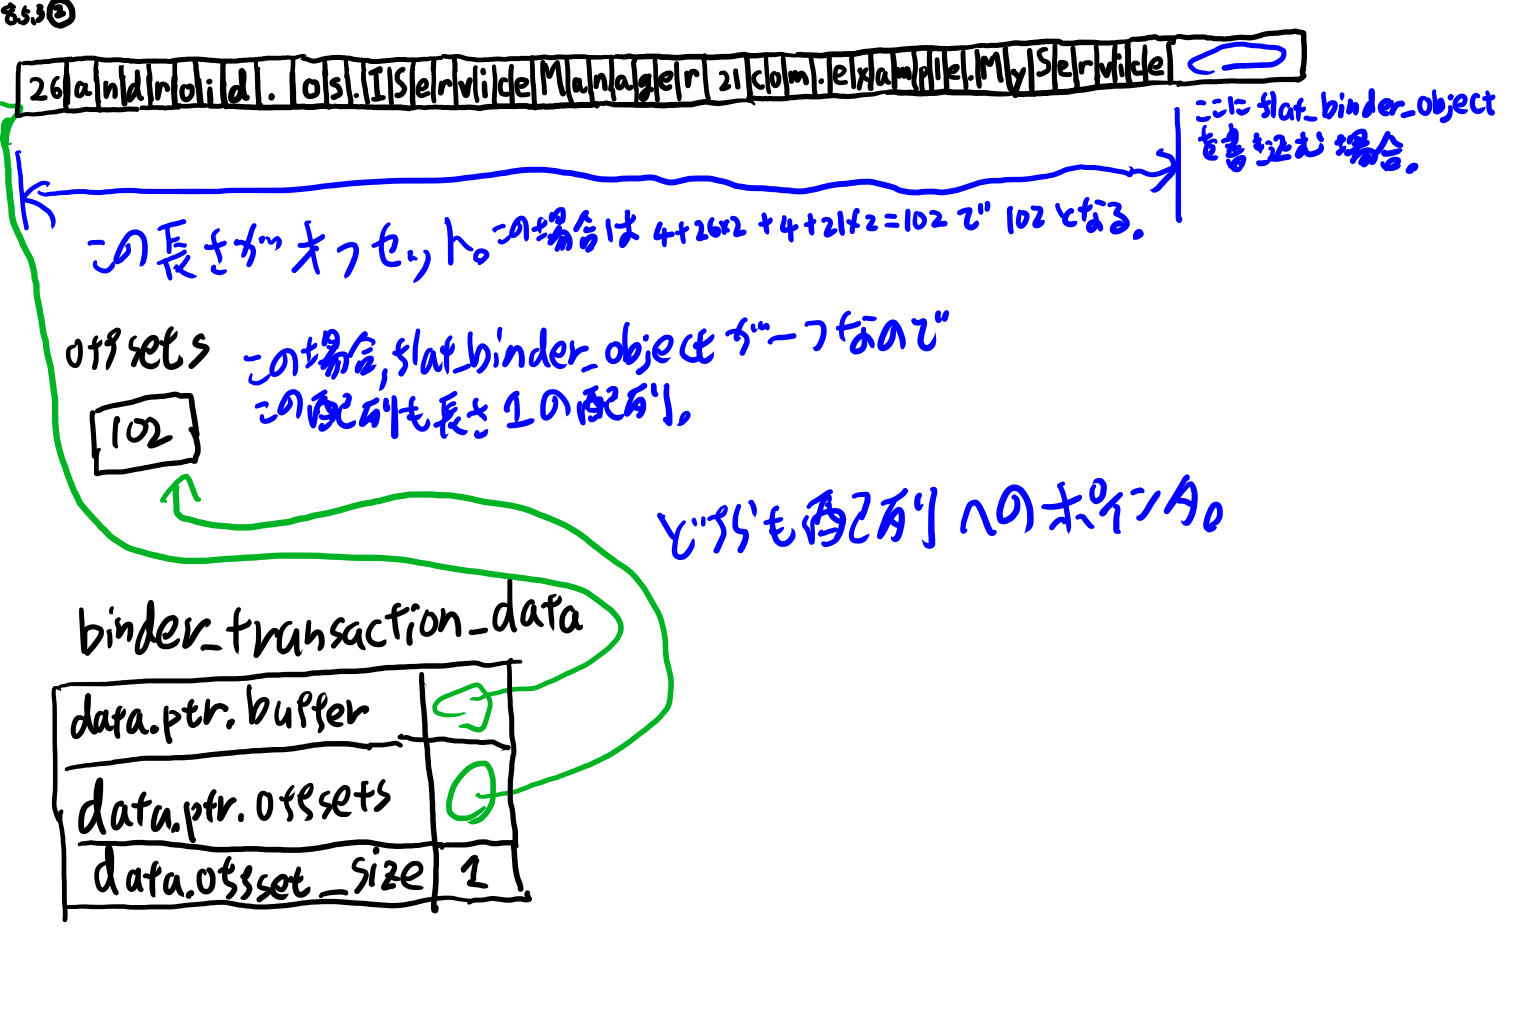 8.5.3②
26android.os.IServiceManager21com.example.MyService
ここにflat_binder_object
を書き込む場合。
この長さがオフセット。この場合は4+26*2+4+21*2=102で102となる。
offsets
この場合,flat_binder_objectが一つなので
この配列も長さ1の配列。
102
どちらも配列へのポインタ。
binder_transaction_data
data.ptr.buffer
data.ptr.offsets
data.offset_size 1